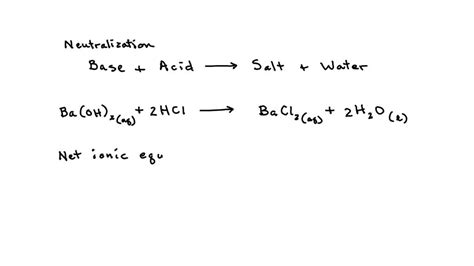 Neutralization
Base + Acid → Salt + Water
Ba(OH)₂(aq) + 2HCl → BaCl₂(aq) + 2H₂O(l)
Net ionic equ